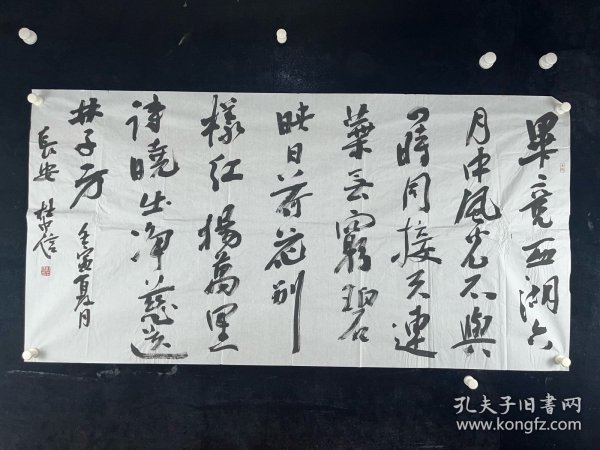 畢竟西湖六
月中風光不與
四時同接天連
葉無窮碧
映日荷花別
樣紅楊萬里
詩曉出净慈送
林子方 壬寅夏月
長安 杜中信
孔夫子旧書网
www.kongfz.com